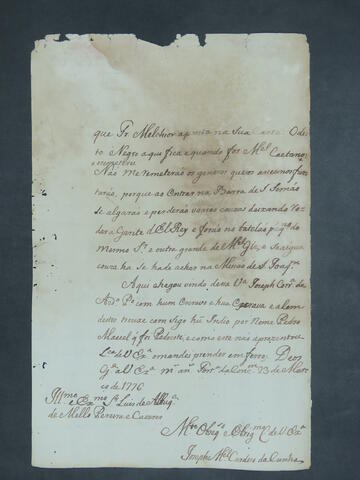 que Fr. Melchior aponta na Sua Carta. O de
to Negro aqui fica e quando for M.el Caetano
o remeterei
Não me remeterão os generos que os anconos fur
tarão, porque ao Entrar na Barra de S. Simão
Se alagarão e perderão varias couzas deixando Va
der a Gente d'El Rey e forão no
mesmo S.r e outra grande de M.el Glz, e Se algua
couza ha Se hade achar na Missão de S. Joaq.m
Aqui chegou vindo, dessa V.a Joseph Corr.a de
And.e P.o com hum Crioulo e hua e alem
destes trouxe com sigo hũ Indio por Nome Pedro
Maciel q̃ foi Pedestre, e como este não aprezentou
L.ca de V. Ex.a o mandei prender em ferros. Deos
G.e a V. Ex.a m.s an.s Fort.a da Con.cam 23 de Mar
ço de 1776
Ill.mo e Ex.mo S.r Luis de Albuq.e
de Mello Pereira e Caceres
M.to Obrig.o e Obrig.mo C. de V. Ex.a
Joseph M.el Cardozo da Cunha